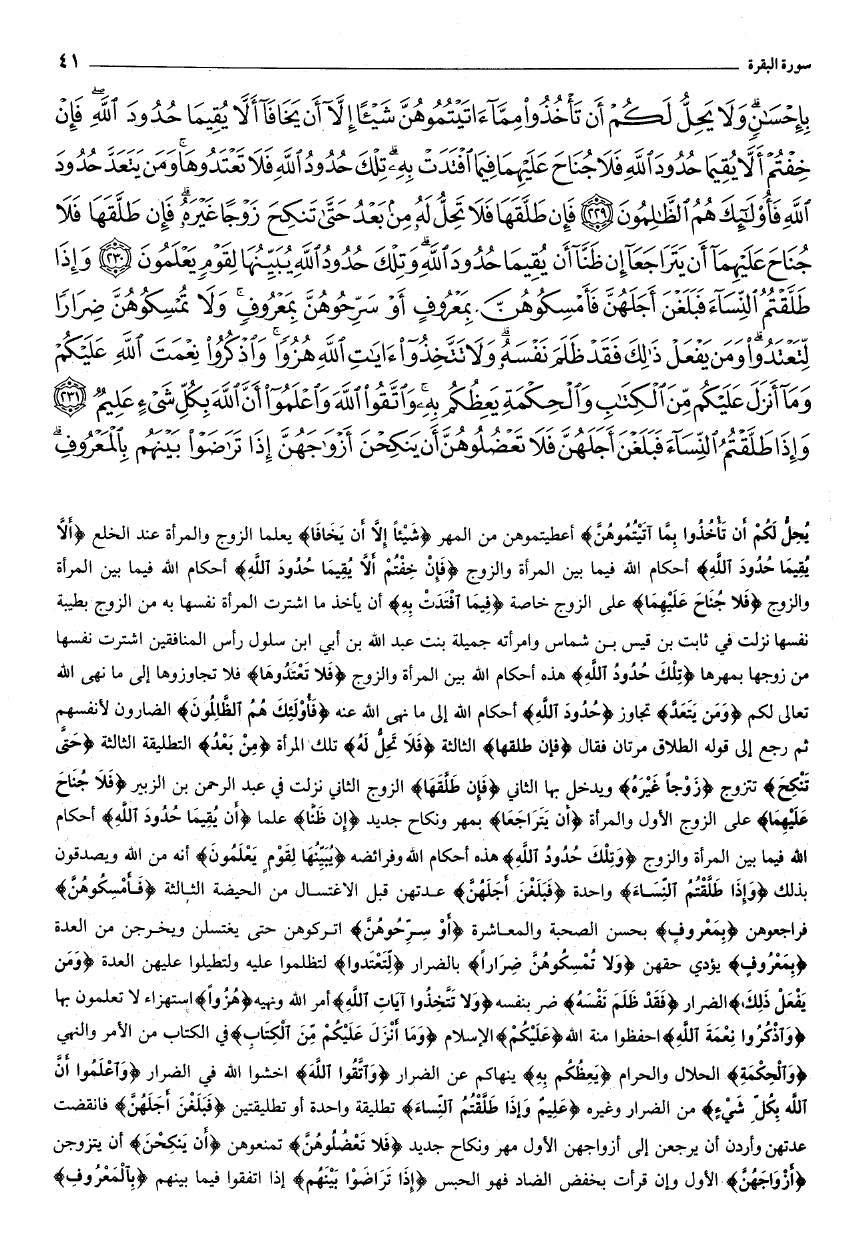 سورة البقرة ٤١
بِإِحْسَٰنٍۗ وَلَا يَحِلُّ لَكُمْ أَن تَأْخُذُوا۟ مِمَّآ ءَاتَيْتُمُوهُنَّ شَيْـًٔا إِلَّآ أَن يَخَافَآ أَلَّا يُقِيمَا حُدُودَ ٱللَّهِۖ فَإِنْ
خِفْتُمْ أَلَّا يُقِيمَا حُدُودَ ٱللَّهِ فَلَا جُنَاحَ عَلَيْهِمَا فِيمَا ٱفْتَدَتْ بِهِۦۗ تِلْكَ حُدُودُ ٱللَّهِ فَلَا تَعْتَدُوهَاۚ وَمَن يَتَعَدَّ حُدُودَ
ٱللَّهِ فَأُو۟لَٰٓئِكَ هُمُ ٱلظَّٰلِمُونَ ﴿٢٢٩﴾ فَإِن طَلَّقَهَا فَلَا تَحِلُّ لَهُۥ مِنۢ بَعْدُ حَتَّىٰ تَنكِحَ زَوْجًا غَيْرَهُۥۗ فَإِن طَلَّقَهَا فَلَا
جُنَاحَ عَلَيْهِمَآ أَن يَتَرَاجَعَآ إِن ظَنَّآ أَن يُقِيمَا حُدُودَ ٱللَّهِۗ وَتِلْكَ حُدُودُ ٱللَّهِ يُبَيِّنُهَا لِقَوْمٍ يَعْلَمُونَ ﴿٢٣٠﴾ وَإِذَا
طَلَّقْتُمُ ٱلنِّسَآءَ فَبَلَغْنَ أَجَلَهُنَّ فَأَمْسِكُوهُنَّ بِمَعْرُوفٍ أَوْ سَرِّحُوهُنَّ بِمَعْرُوفٍۚ وَلَا تُمْسِكُوهُنَّ ضِرَارًا
لِّتَعْتَدُوا۟ۚ وَمَن يَفْعَلْ ذَٰلِكَ فَقَدْ ظَلَمَ نَفْسَهُۥۚ وَلَا تَتَّخِذُوٓا۟ ءَايَٰتِ ٱللَّهِ هُزُوًاۚ وَٱذْكُرُوا۟ نِعْمَتَ ٱللَّهِ عَلَيْكُمْ
وَمَآ أَنزَلَ عَلَيْكُم مِّنَ ٱلْكِتَٰبِ وَٱلْحِكْمَةِ يَعِظُكُم بِهِۦۚ وَٱتَّقُوا۟ ٱللَّهَ وَٱعْلَمُوٓا۟ أَنَّ ٱللَّهَ بِكُلِّ شَىْءٍ عَلِيمٌ ﴿٢٣١﴾
وَإِذَا طَلَّقْتُمُ ٱلنِّسَآءَ فَبَلَغْنَ أَجَلَهُنَّ فَلَا تَعْضُلُوهُنَّ أَن يَنكِحْنَ أَزْوَٰجَهُنَّ إِذَا تَرَٰضَوْا۟ بَيْنَهُم بِٱلْمَعْرُوفِۗ
يُحِلُّ لَكُمْ أَن تَأْخُذُوا مِمَّا آتَيْتُمُوهُنَّ﴾ أعطيتموهن من المهر ﴿شَيْئاً إِلَّا أَن يَخَافَا﴾ يعلما الزوج والمرأة عند الخلع ﴿أَلَّا
يُقِيمَا حُدُودَ ٱللَّهِ﴾ أحكام الله فيما بين المرأة والزوج ﴿فَإِنْ خِفْتُمْ أَلَّا يُقِيمَا حُدُودَ ٱللَّهِ﴾ أحكام الله فيما بين المرأة
والزوج ﴿فَلا جُنَاحَ عَلَيْهِمَا﴾ على الزوج خاصة ﴿فِيمَا ٱفْتَدَتْ بِهِ﴾ أن يأخذ ما اشترت المرأة نفسها به من الزوج بطيبة
نفسها نزلت في ثابت بن قيس بن شماس وامرأته جميلة بنت عبد الله بن أبي ابن سلول رأس المنافقين اشترت نفسها
من زوجها بمهرها ﴿تِلْكَ حُدُودُ ٱللَّهِ﴾ هذه أحكام الله بين المرأة والزوج ﴿فَلا تَعْتَدُوهَا﴾ فلا تجاوزوها إلى ما نهى الله
تعالى لكم ﴿وَمَن يَتَعَدَّ﴾ تجاوز ﴿حُدُودَ ٱللَّهِ﴾ أحكام الله إلى ما نهى الله عنه ﴿فَأُوْلَئِكَ هُمُ ٱلظَّالِمُونَ﴾ الضارون لأنفسهم
ثم رجع إلى قوله الطلاق مرتان فقال ﴿فإن طلقها﴾ الثالثة ﴿فَلَا تَحِلُّ لَهُ﴾ تلك المرأة ﴿مِنْ بَعْدُ﴾ التطليقة الثالثة ﴿حَتَّى
تَنْكِحَ﴾ تتزوج ﴿زَوْجاً غَيْرَهُ﴾ ويدخل بها الثاني ﴿فَإِن طَلَّقَهَا﴾ الزوج الثاني نزلت في عبد الرحمن بن الزبير ﴿فَلا جُنَاحَ
عَلَيْهِمَا﴾ على الزوج الأول والمرأة ﴿أَن يَتَرَاجَعَا﴾ بمهر ونكاح جديد ﴿إِن ظَنَّا﴾ علما ﴿أَن يُقِيمَا حُدُودَ ٱللَّهِ﴾ أحكام
الله فيما بين المرأة والزوج ﴿وَتِلْكَ حُدُودُ ٱللَّهِ﴾ هذه أحكام الله وفرائضه ﴿يُبَيِّنُهَا لِقَوْمٍ يَعْلَمُونَ﴾ أنه من الله ويصدقون
بذلك ﴿وَإِذَا طَلَّقْتُمُ ٱلنِّسَاءَ﴾ واحدة ﴿فَبَلَغْنَ أَجَلَهُنَّ﴾ عدتهن قبل الاغتسال من الحيضة الثالثة ﴿فَأَمْسِكُوهُنَّ﴾
فراجعوهن ﴿بِمَعْروفٍ﴾ بحسن الصحبة والمعاشرة ﴿أَوْ سَرِّحُوهُنَّ﴾ اتركوهن حتى يغتسلن ويخرجن من العدة
﴿بِمَعْرُوفٍ﴾ يؤدي حقهن ﴿وَلا تُمْسِكُوهُنَّ ضِرَاراً﴾ بالضرار ﴿لِتَعْتَدوا﴾ لتظلموا عليه ولتطيلوا عليهن العدة ﴿وَمَن
يَفْعَلْ ذَلِكَ﴾ الضرار ﴿فَقَدْ ظَلَمَ نَفْسَهُ﴾ ضر بنفسه ﴿وَلا تَتَّخِذُوا آيَاتِ ٱللَّهِ﴾ أمر الله ونهيه ﴿هُزُواً﴾ استهزاء لا تعلمون بها
﴿وَٱذْكُرُوا نِعْمَةَ ٱللَّهِ﴾ احفظوا منة الله ﴿عَلَيْكُمْ﴾ الإسلام ﴿وَمَا أَنْزَلَ عَلَيْكُمْ مِّنَ ٱلْكِتَابِ﴾ في الكتاب من الأمر والنهي
﴿وَٱلْحِكْمَةِ﴾ الحلال والحرام ﴿يَعِظُكُم بِهِ﴾ ينهاكم عن الضرار ﴿وَٱتَّقُوا ٱللَّهَ﴾ اخشوا الله في الضرار ﴿وَٱعْلَمُوا أَنَّ
ٱللَّه بِكُلِّ شَيْءٍ﴾ من الضرار وغيره ﴿عَلِيمٌ وَإِذَا طَلَّقْتُمُ ٱلنِّساءَ﴾ تطليقة واحدة أو تطليقتين ﴿فَبَلَغْنَ أَجَلَهُنَّ﴾ فانقضت
عدتهن وأردن أن يرجعن إلى أزواجهن الأول مهر ونكاح جديد ﴿فَلا تَعْضُلُوهُنَّ﴾ تمنعوهن ﴿أَن يَنكِحْنَ﴾ أن يتزوجن
﴿أَزْوَاجَهُنَّ﴾ الأول وإن قرأت بخفض الضاد فهو الحبس ﴿إِذَا تَرَاضَوْا بَيْنَهُم﴾ إذا اتفقوا فيما بينهم ﴿بِٱلْمَعْرُوفِ﴾